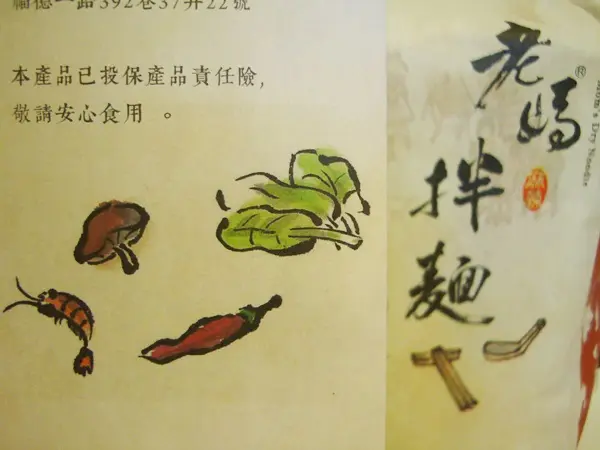 福德一路392巷37弄22號
本產品已投保產品責任險,
敬請安心食用 。
老媽
拌麵
®
Mom's Dry Noodle